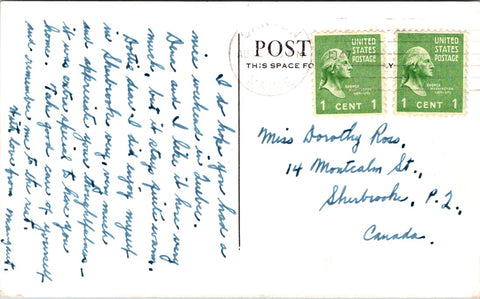 I do hope you had a
nice weekend in Quebec.
Dave and I like it here very
much, but it stays quite warm.
Dottie dear I did enjoy myself
in Sherbrooke very, very much
and appreciate your thoughtfulness -
it was extra special to have you
home. Take good care of yourself
and remember me to the rest.
With love from Margaret.
POST
THIS SPACE FO
LY
UNITED
STATES
POSTAGE
GEORGE
WASHINGTON
1 CENT 1
UNITED
STATES
POSTAGE
GEORGE
WASHINGTON
1 CENT 1
Miss Dorothy Ross,
14 Montcalm St.,
Sherbrooke, P.Q.,
Canada.